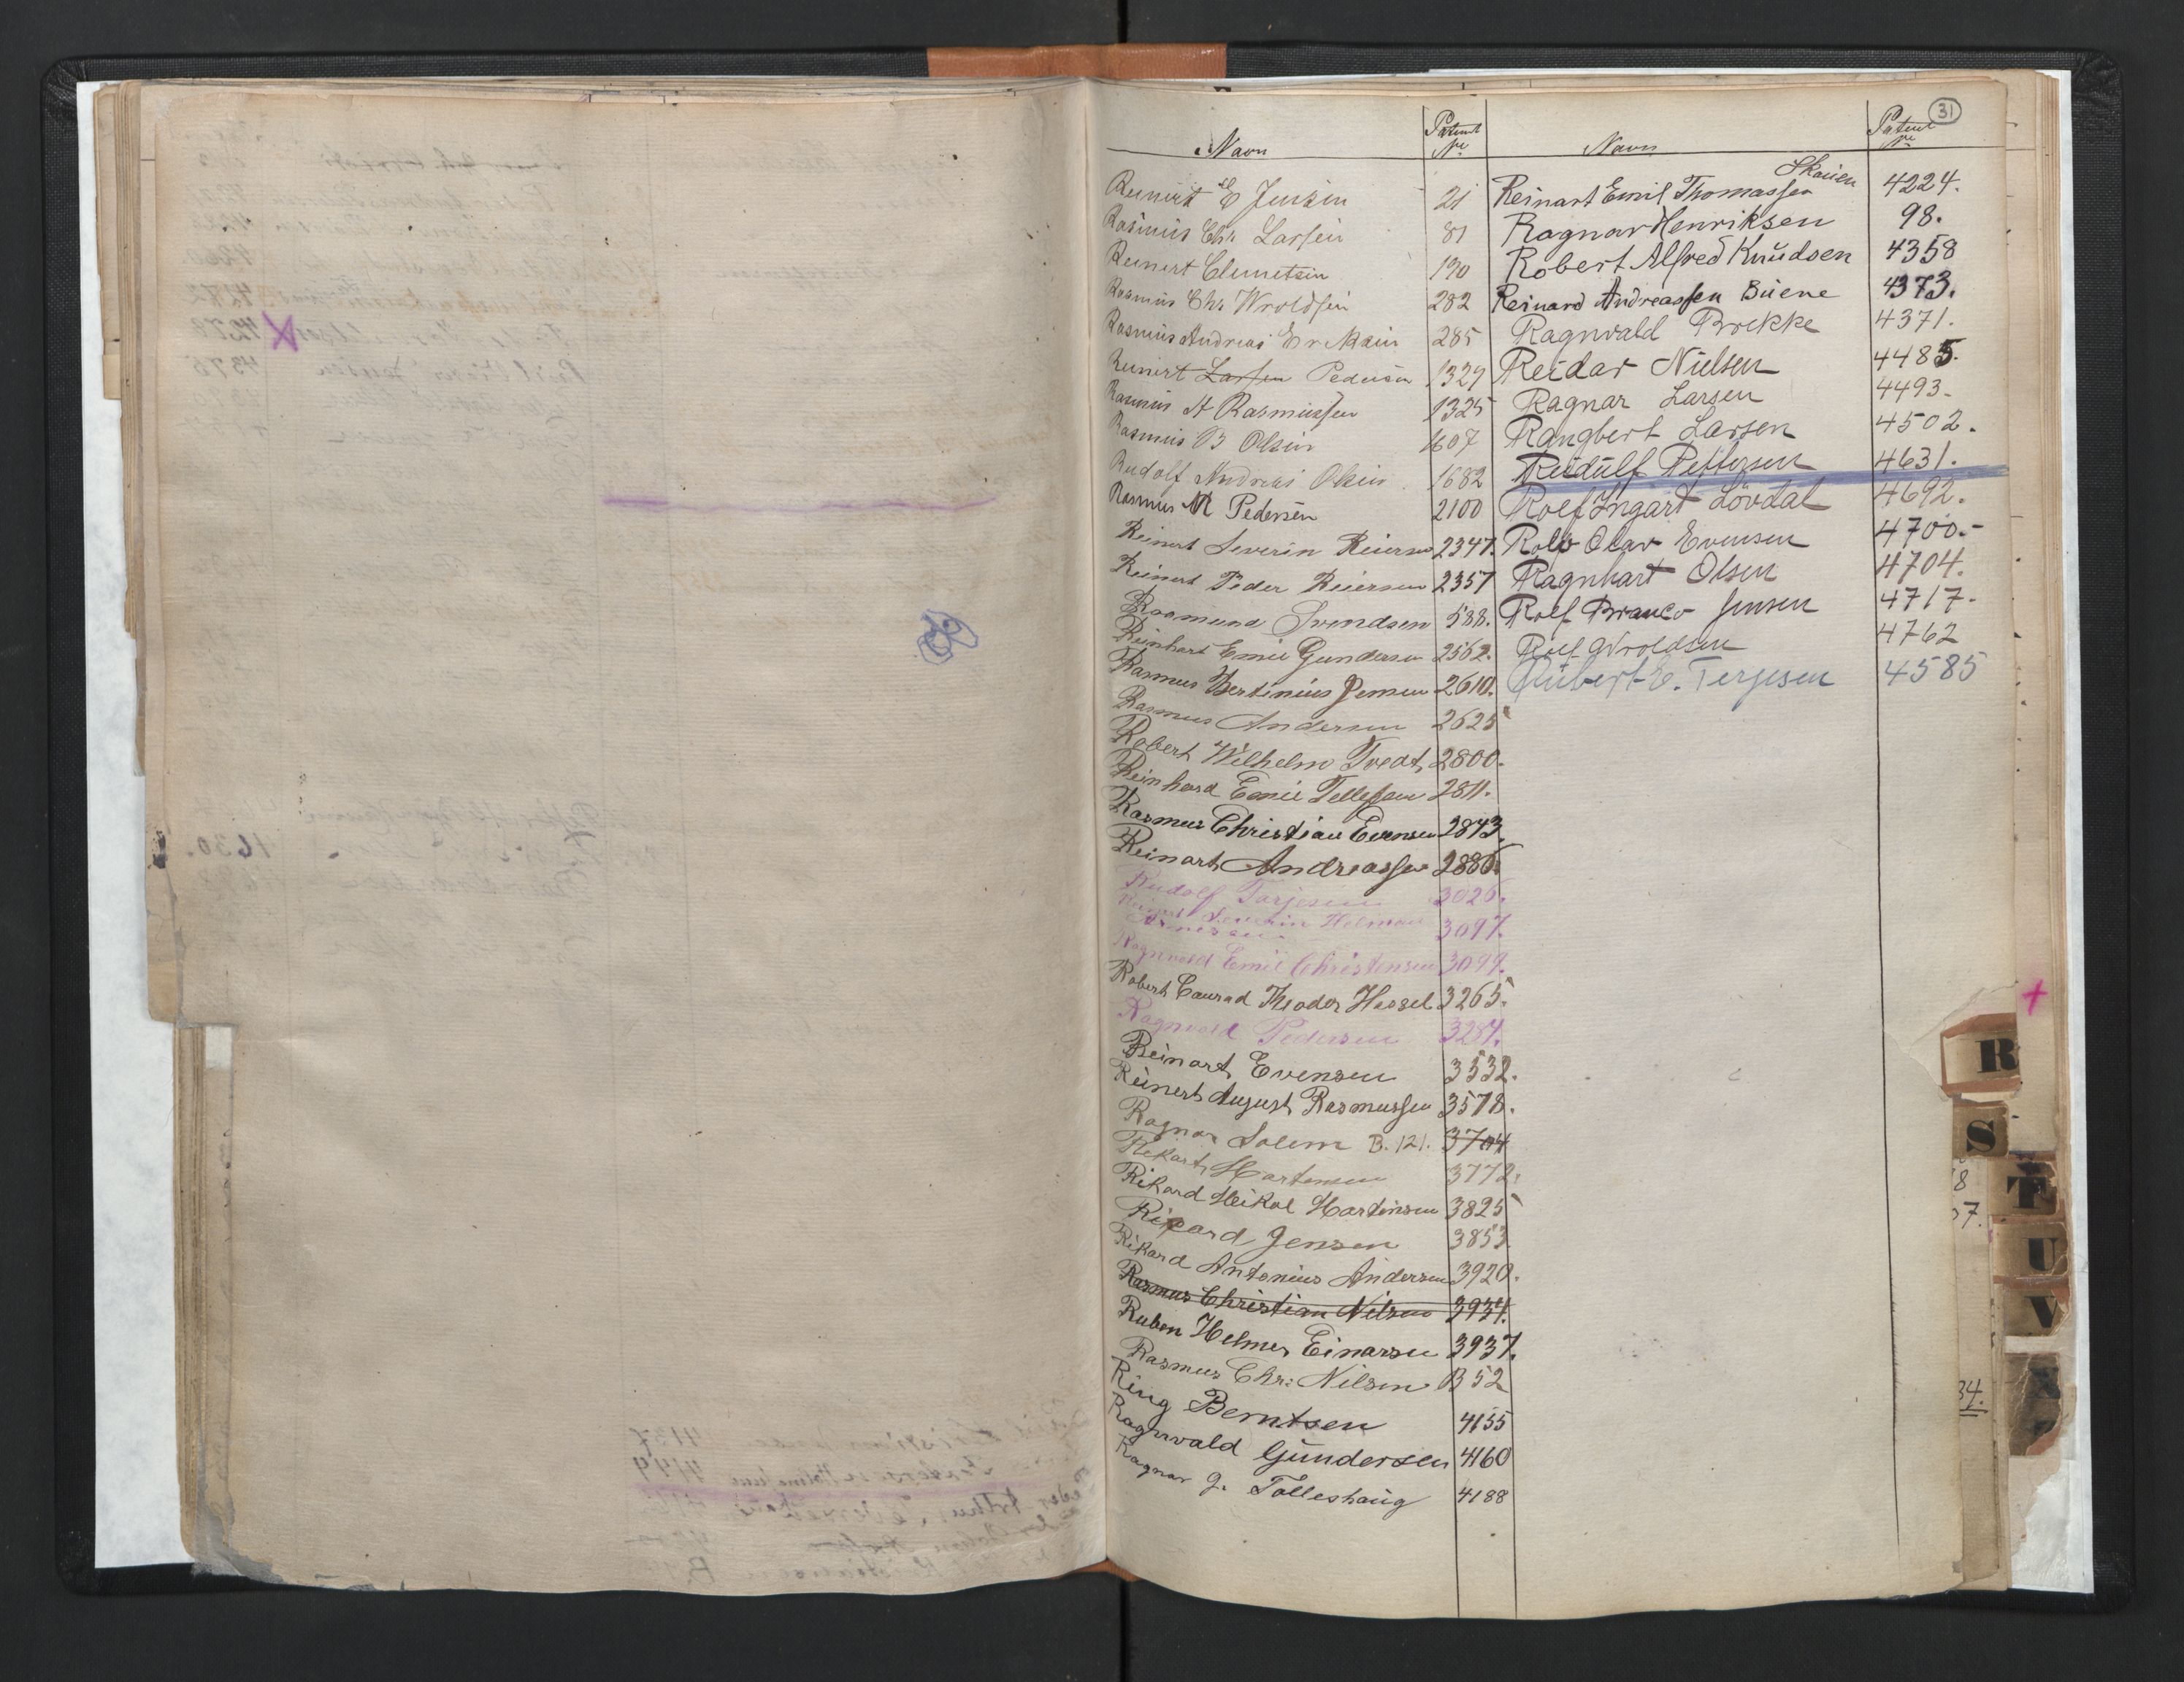 31
Navn Patent No
Reinert E Jensen 21
Rasmus Chr Larsen 81
Reinert Clemetsen 190
Rasmus Chr. Wroldsen 282
Rasmus Andreas Eriksen 285
Reinert Larsen Pedersen 1324
Rasmus A Rasmussen 1325
Rasmus B Olsen 1607
Rudolf Andreas Olsen 1682
Rasmus M Pedersen 2100
Reinert Severin Reiersen 2347.
Reinert Peder Reiersen 2357
Rasmund Svendsen 588.
Reinhart Emil Gundersen 2562.
Rasmus Bertinius Jensen 2610.
Rasmus Andersen 2625
Robert Wilhelm Tvedt 2800.
Reinhard Emil Tellefsen 2811.
Rasmus Christian Evensen 2843.
Reinart Andreassen 2886.
Rudolf Tarjesen 3026.
Reinert Severin Helmer 3097.
Ragnvald Emil Christensen 3099.
Robert Conrad Theodor Hassel 3265.
Ragnvald Pedersen 3284.
Reinart Evensen 3532.
Reinert August Rasmussen 3578.
Ragnar Solem B. 121. 3704
Rikart Martensen 3772.
Rikard Meikal Martinsen 3825
Rikard Jensen 3853
Rikard Antonius Andersen 3920.
Rasmus Christian Nilsen 3934.
Ruben Helmer Einarsen 3937.
Rasmus Chr: Nilsen B 52
Ring Berntsen 4155
Ragnvald Gundersen 4160
Ragnar G. Tolleshaug 4188
Navn Patent No
Skaien
Reinart Emil Thomassen 4224.
Ragnar Henriksen 98.
Robert Alfred Knudsen 4358
Reinard Andreassen Buene 4373.
Ragnvald Brekke 4371.
Reidar Nielsen 4485.
Ragnar Larsen 4493.
Rangbert Larsen 4502.
Reidulf Pettersen 4631.
Rolf Ingart Lövdal 4692.
Rolf Olav Evensen 4700.-
Ragnhart Olsen 4704.
Rolf Branco Jensen 4717.
Rolf Wroldsen 4762
Rubert E. Terjesen 4585
R
S
T
U
V
X
8
07.
34.